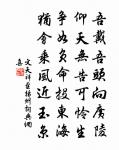 吾戴吾頭向廣陵
仰天無告可憐生
爭如負命投東海
猶會乘風近玉京
文天祥至揚州詞典網
集